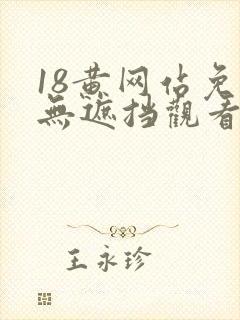 18黄网佔免
無遮挡觀看
王永珍